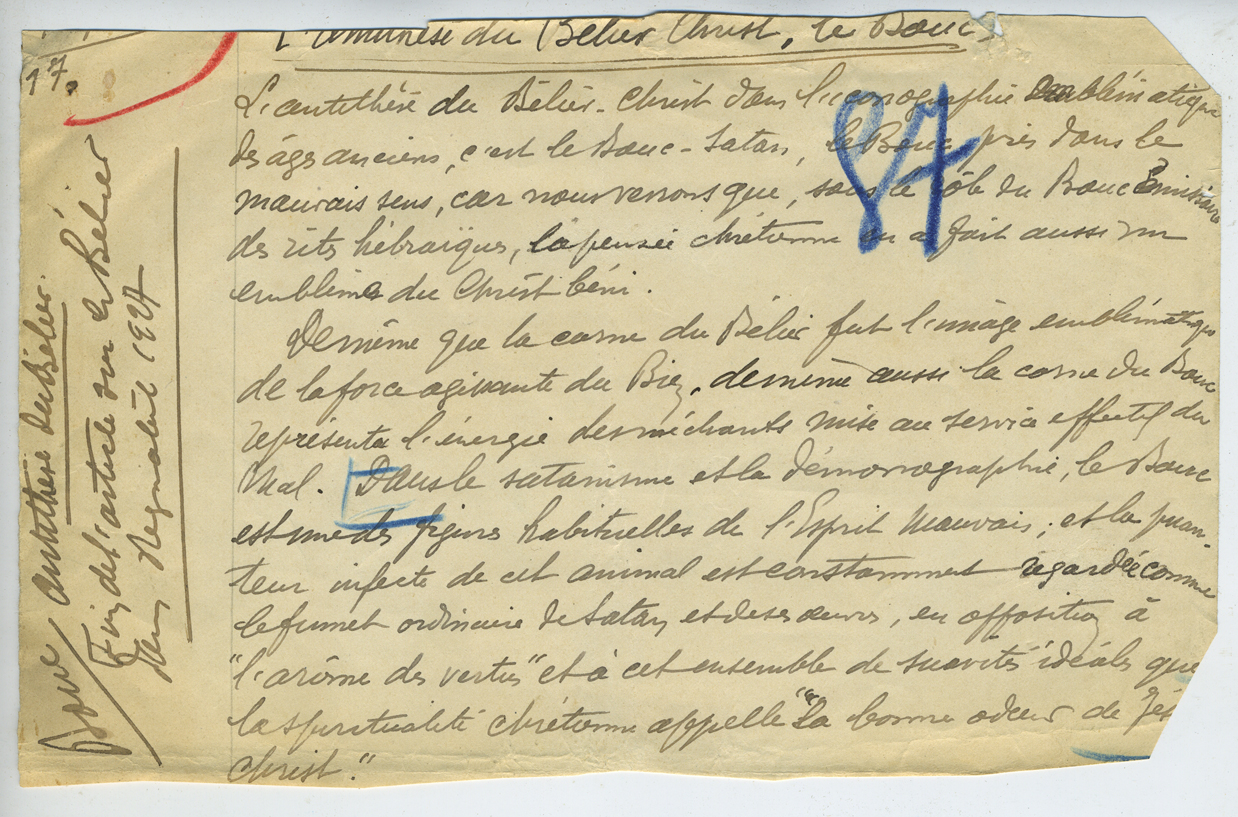 du Bélier Christ, le Bouc
17.
L'antithèse du Bélier-Christ dans l'iconographie emblématique
des âges anciens, c'est le Bouc-Satan, le Bouc pris dans le
mauvais sens, car nous verrons que, sous le rôle du Bouc Émissaire
des rits hébraïques, la pensée chrétienne en a fait aussi un
emblème du Christ béni.
De même que la corne du Bélier fut l'image emblématique
de la force agissante du Bien, de même aussi la corne du Bouc
représenta l'énergie des méchants mise au service effectif du
Mal. Dans le satanisme et la démonographie, le Bouc
est une des figures habituelles de l'Esprit Mauvais, et la puan-
teur infecte de cet animal est constamment regardée comme
le fumet ordinaire de Satan et de ses œuvres, en opposition à
"l'arôme des vertus" et à cet ensemble de suavités idéales que
la spiritualité chrétienne appelle "la bonne odeur de Jés
Christ."
87
Bouc antithèse du Bélier.
Fin de l'article sur le Bélier
dans Regnabit 1927